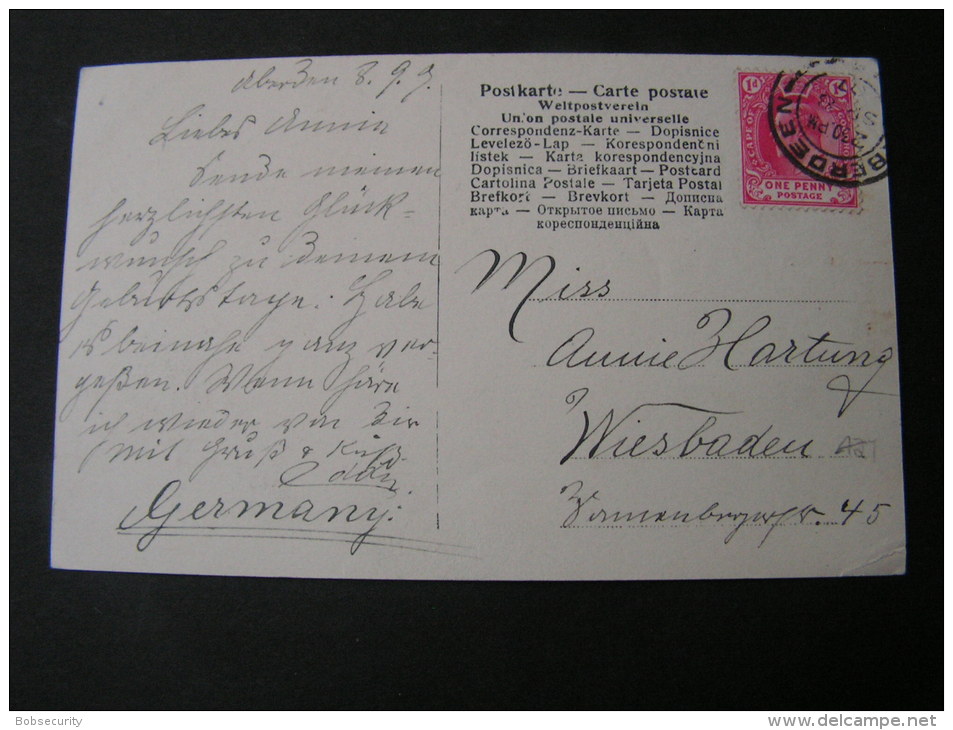 Aberdeen 8.9.7.
Liebes Annie
Sende meinen
herzlichsten Glück-
wunsch zu deinem
Geburtstage. Habe
es beinahe ganz ver-
geßen. Wann höre
ich wieder von Dir
Mit Gruß & Kuss
Germany.
Postkarte — Carte postale
Weltpostverein
Union postale universelle
Correspondenz-Karte — Dopisnice
Levelező-Lap — Korespondenčni
listek — Karta korespondencyjna
Dopisnica — Briefkaart — Postcard
Cartolina Postale — Tarjeta Postal
Brefkort — Brevkort — Дописна
карта — Открытое письмо — Карта
кореспонденційна
CAPE OF GOOD
1d
ONE PENNY
POSTAGE
ABERDEEN
Miss
Annie Hartung
Wiesbaden
Sonnenbergerstr. 45
Bobsecurity
www.delcampe.net